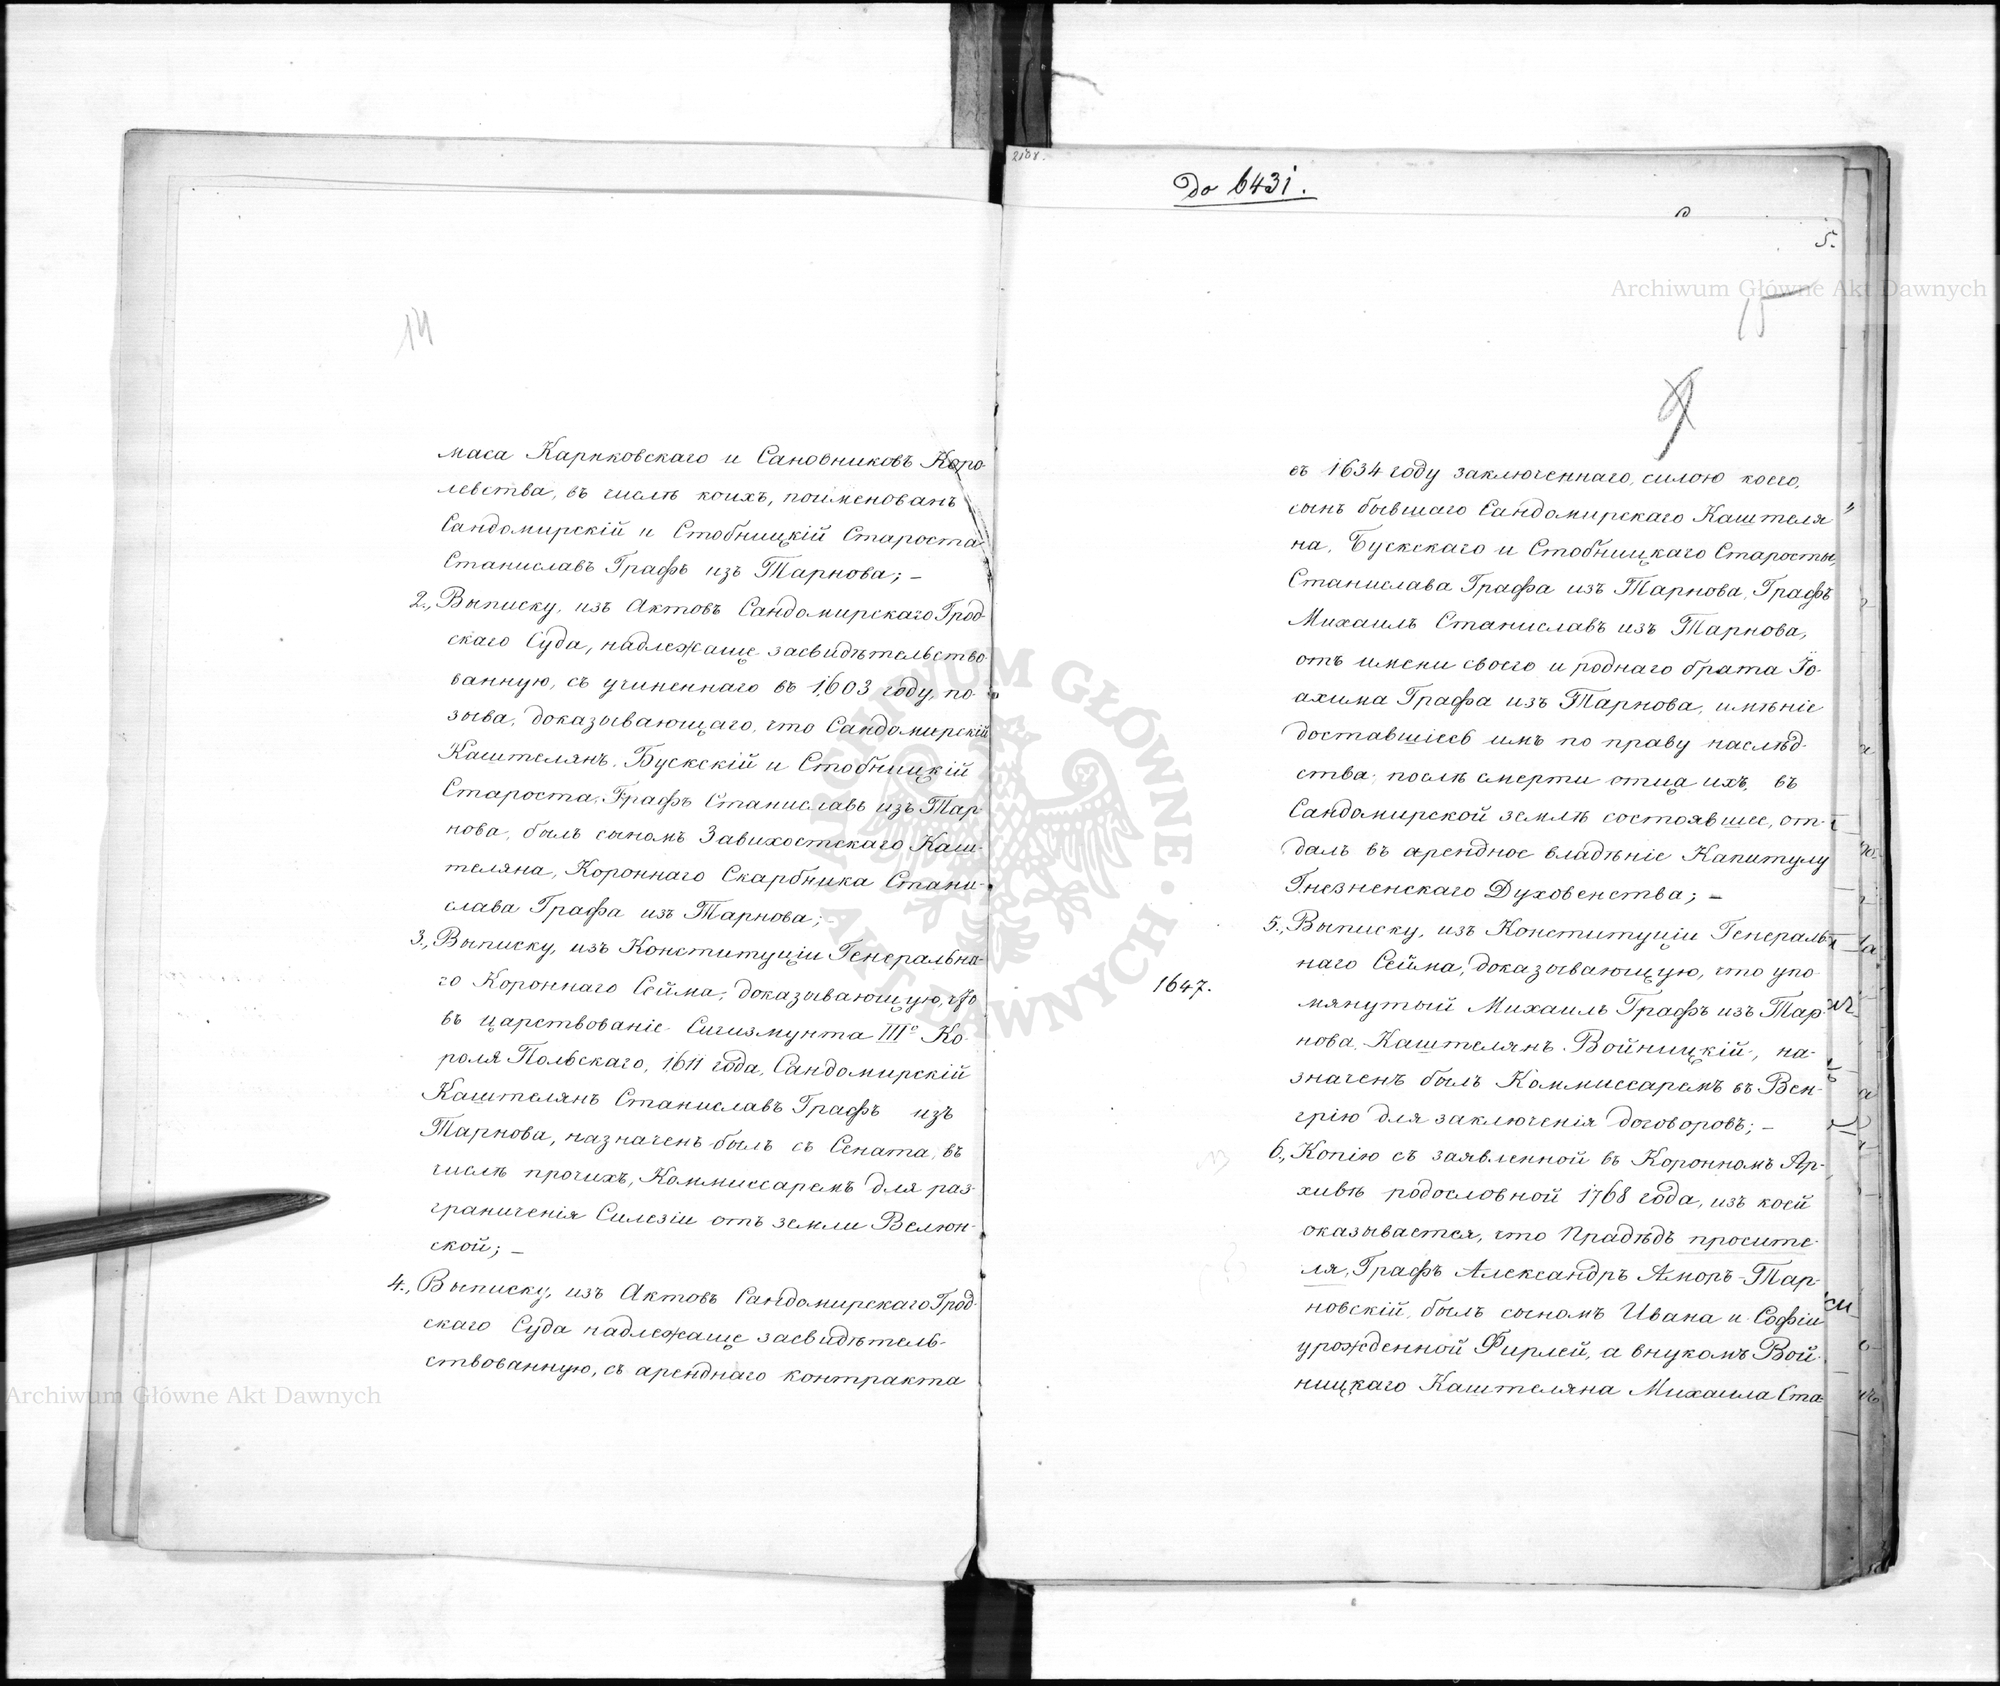 14
маса Карнковскаго и Сановниковъ Коро-
левства, въ числѣ коихъ, поименованъ
Сандомирскій и Стобницкій Староста
Станиславъ Графъ изъ Тарнова; –
2., Выписку, изъ Актовъ Сандомирскаго Град-
скаго Суда, надлежаще засвидѣтельство-
ванную, съ учиненнаго въ 1603 году, по-
зыва, доказывающаго, что Сандомирскій
Каштелянъ, Бускскій и Стобницкій
Староста, Графъ Станиславъ изъ Тар-
нова, былъ сыномъ Завихостскаго Каш-
теляна, Короннаго Скарбника Стани-
слава Графа изъ Тарнова; –
3., Выписку, изъ Конституціи Генеральна-
го Короннаго Сейма, доказывающую, что
въ царствованіе Сигизмунта IIIго Ко-
роля Польскаго, 1611 года, Сандомирскій
Каштелянъ Станиславъ Графъ изъ
Тарнова, назначенъ былъ съ Сената, въ
числѣ прочихъ, Коммиссаремъ для раз-
граниченія Силезіи отъ земли Велюн-
ской; –
4., Выписку, изъ Актовъ Сандомирскаго Град-
скаго Суда надлежаще засвидѣтель-
ствованную, съ аренднаго контракта
2188.
До 6431.
5.
15
9
въ 1634 году заключеннаго, силою коего,
сынъ бывшаго Сандомирскаго Каштеля-
на, Бускскаго и Стобницкаго Старосты,
Станислава Графа изъ Тарнова, Графъ
Михаилъ Станиславъ изъ Тарнова,
отъ имени своего и роднаго брата Іо-
ахима Графа изъ Тарнова, имѣніе
доставшіеся имъ по праву наслѣд-
ства, послѣ смерти отца ихъ, въ
Сандомирской землѣ состоявшее, от-
далъ въ арендное владѣніе Капитулу
Гнезненскаго Духовенства; –
5., Выписку, изъ Конституціи Генераль-
наго Сейма, доказывающую, что упо-
1647.
мянутый Михаилъ Графъ изъ Тар-
нова, Каштелянъ Войницкій, на-
значенъ былъ Коммиссаремъ въ Вен-
грію для заключенія договоровъ; –
6., Копію съ заявленной въ Коронномъ Ар-
хивѣ родословной 1768 года, изъ коей
оказывается, что Прадѣдъ просите-
ля, Графъ Александръ Аморъ-Тар-
новскій, былъ сыномъ Ивана и Софіи
урожденной Фирлей, а внукомъ Вой-
ницкаго Каштеляна Михаила Ста-
Archiwum Główne Akt Dawnych
Archiwum Główne Akt Dawnych
ARCHIWUM GŁÓWNE · AKT DAWNYCH ·